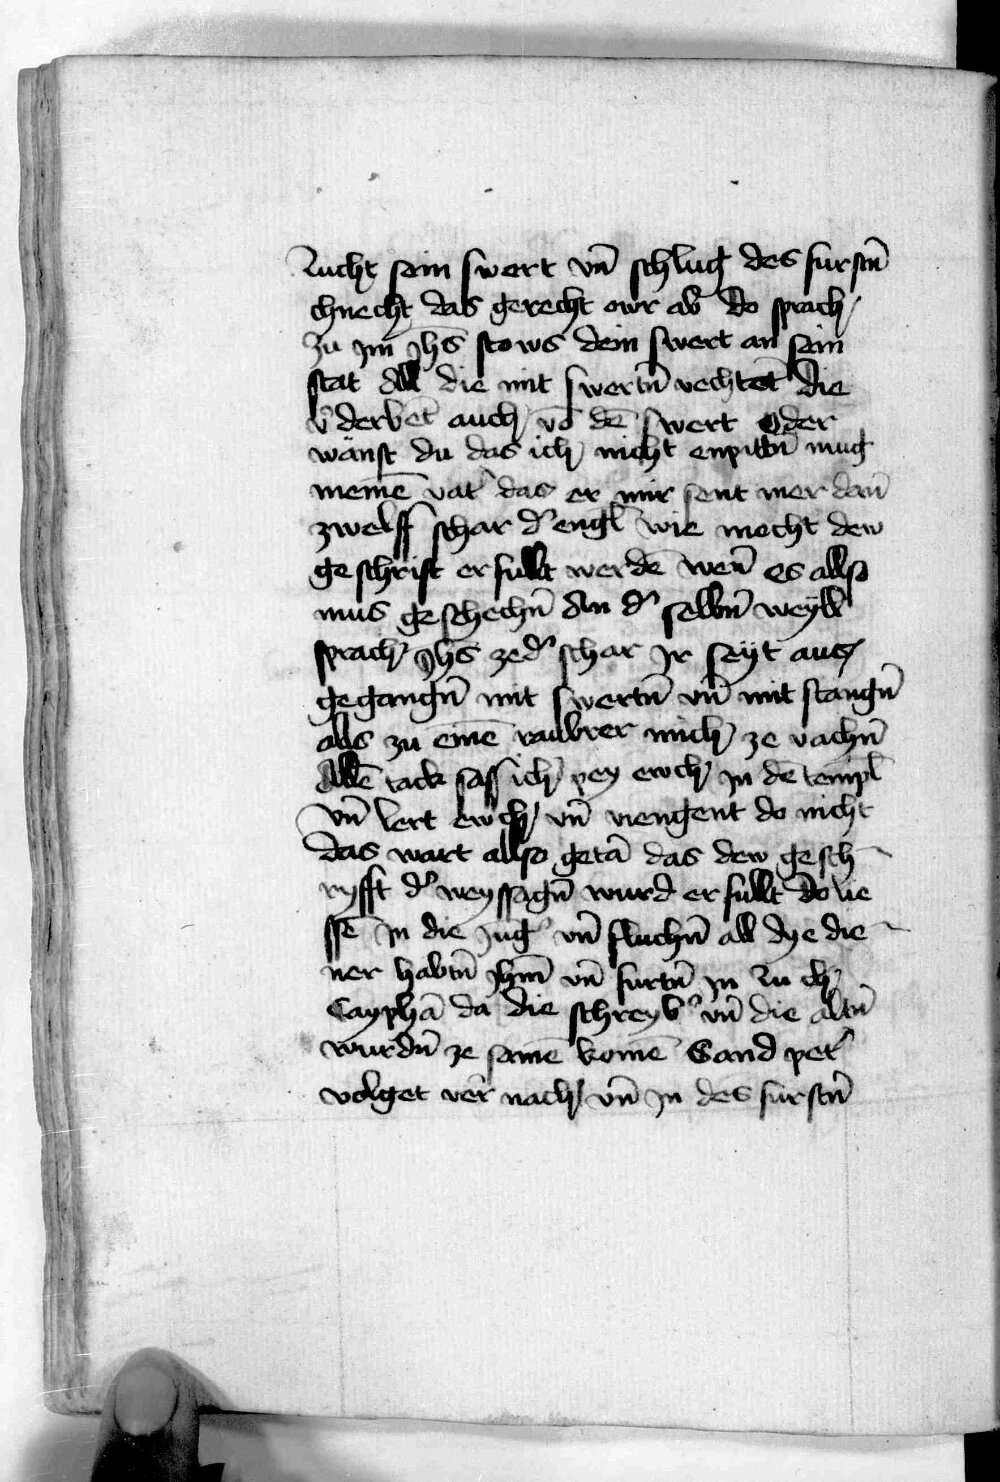 zucht sein swert vn̄ schlug des furstn̄
chnecht das gerecht owr ab Do sprach
zu jm jhs̄ stows dein swert an sein
stat All die mit swertn̄ vechtet̄ die
v'derbet̄ auch vō dē swert Oder
wänst du das ich nicht enpittn̄ mug
meinē vat' das er mir sent mer dan̄
zwelff schar d' engl̄ wie mecht dew
geschrift erfullt werdē wen̄ es allso
mus geschechn̄ An d' selbn̄ weyll
sprach jhs̄ ze d' schar Jr seyt aus
gegangn̄ mit swertn̄ vn̄ mit stangn̄
alls zu einē raubrer mich ze vachn̄
Allē tack sass ich pey ewch jn dē templ̄
vn̄ lert ewch vn̄ viengent do nicht
das wart allso getā das dew gesch-
ryfft d' weyssagn̄ wurd erfullt Do lie
ssē jn die jūg' vn̄ fluchn̄ all dye die-
ner habtn̄ jhm̄ vn̄ furtn̄ jn zu ch
Cayphā da die schreyb' vn̄ die altn̄
wurdn̄ ze samē komē Sand pet'
volget ver̄ nach vn̄ jn des furstn̄